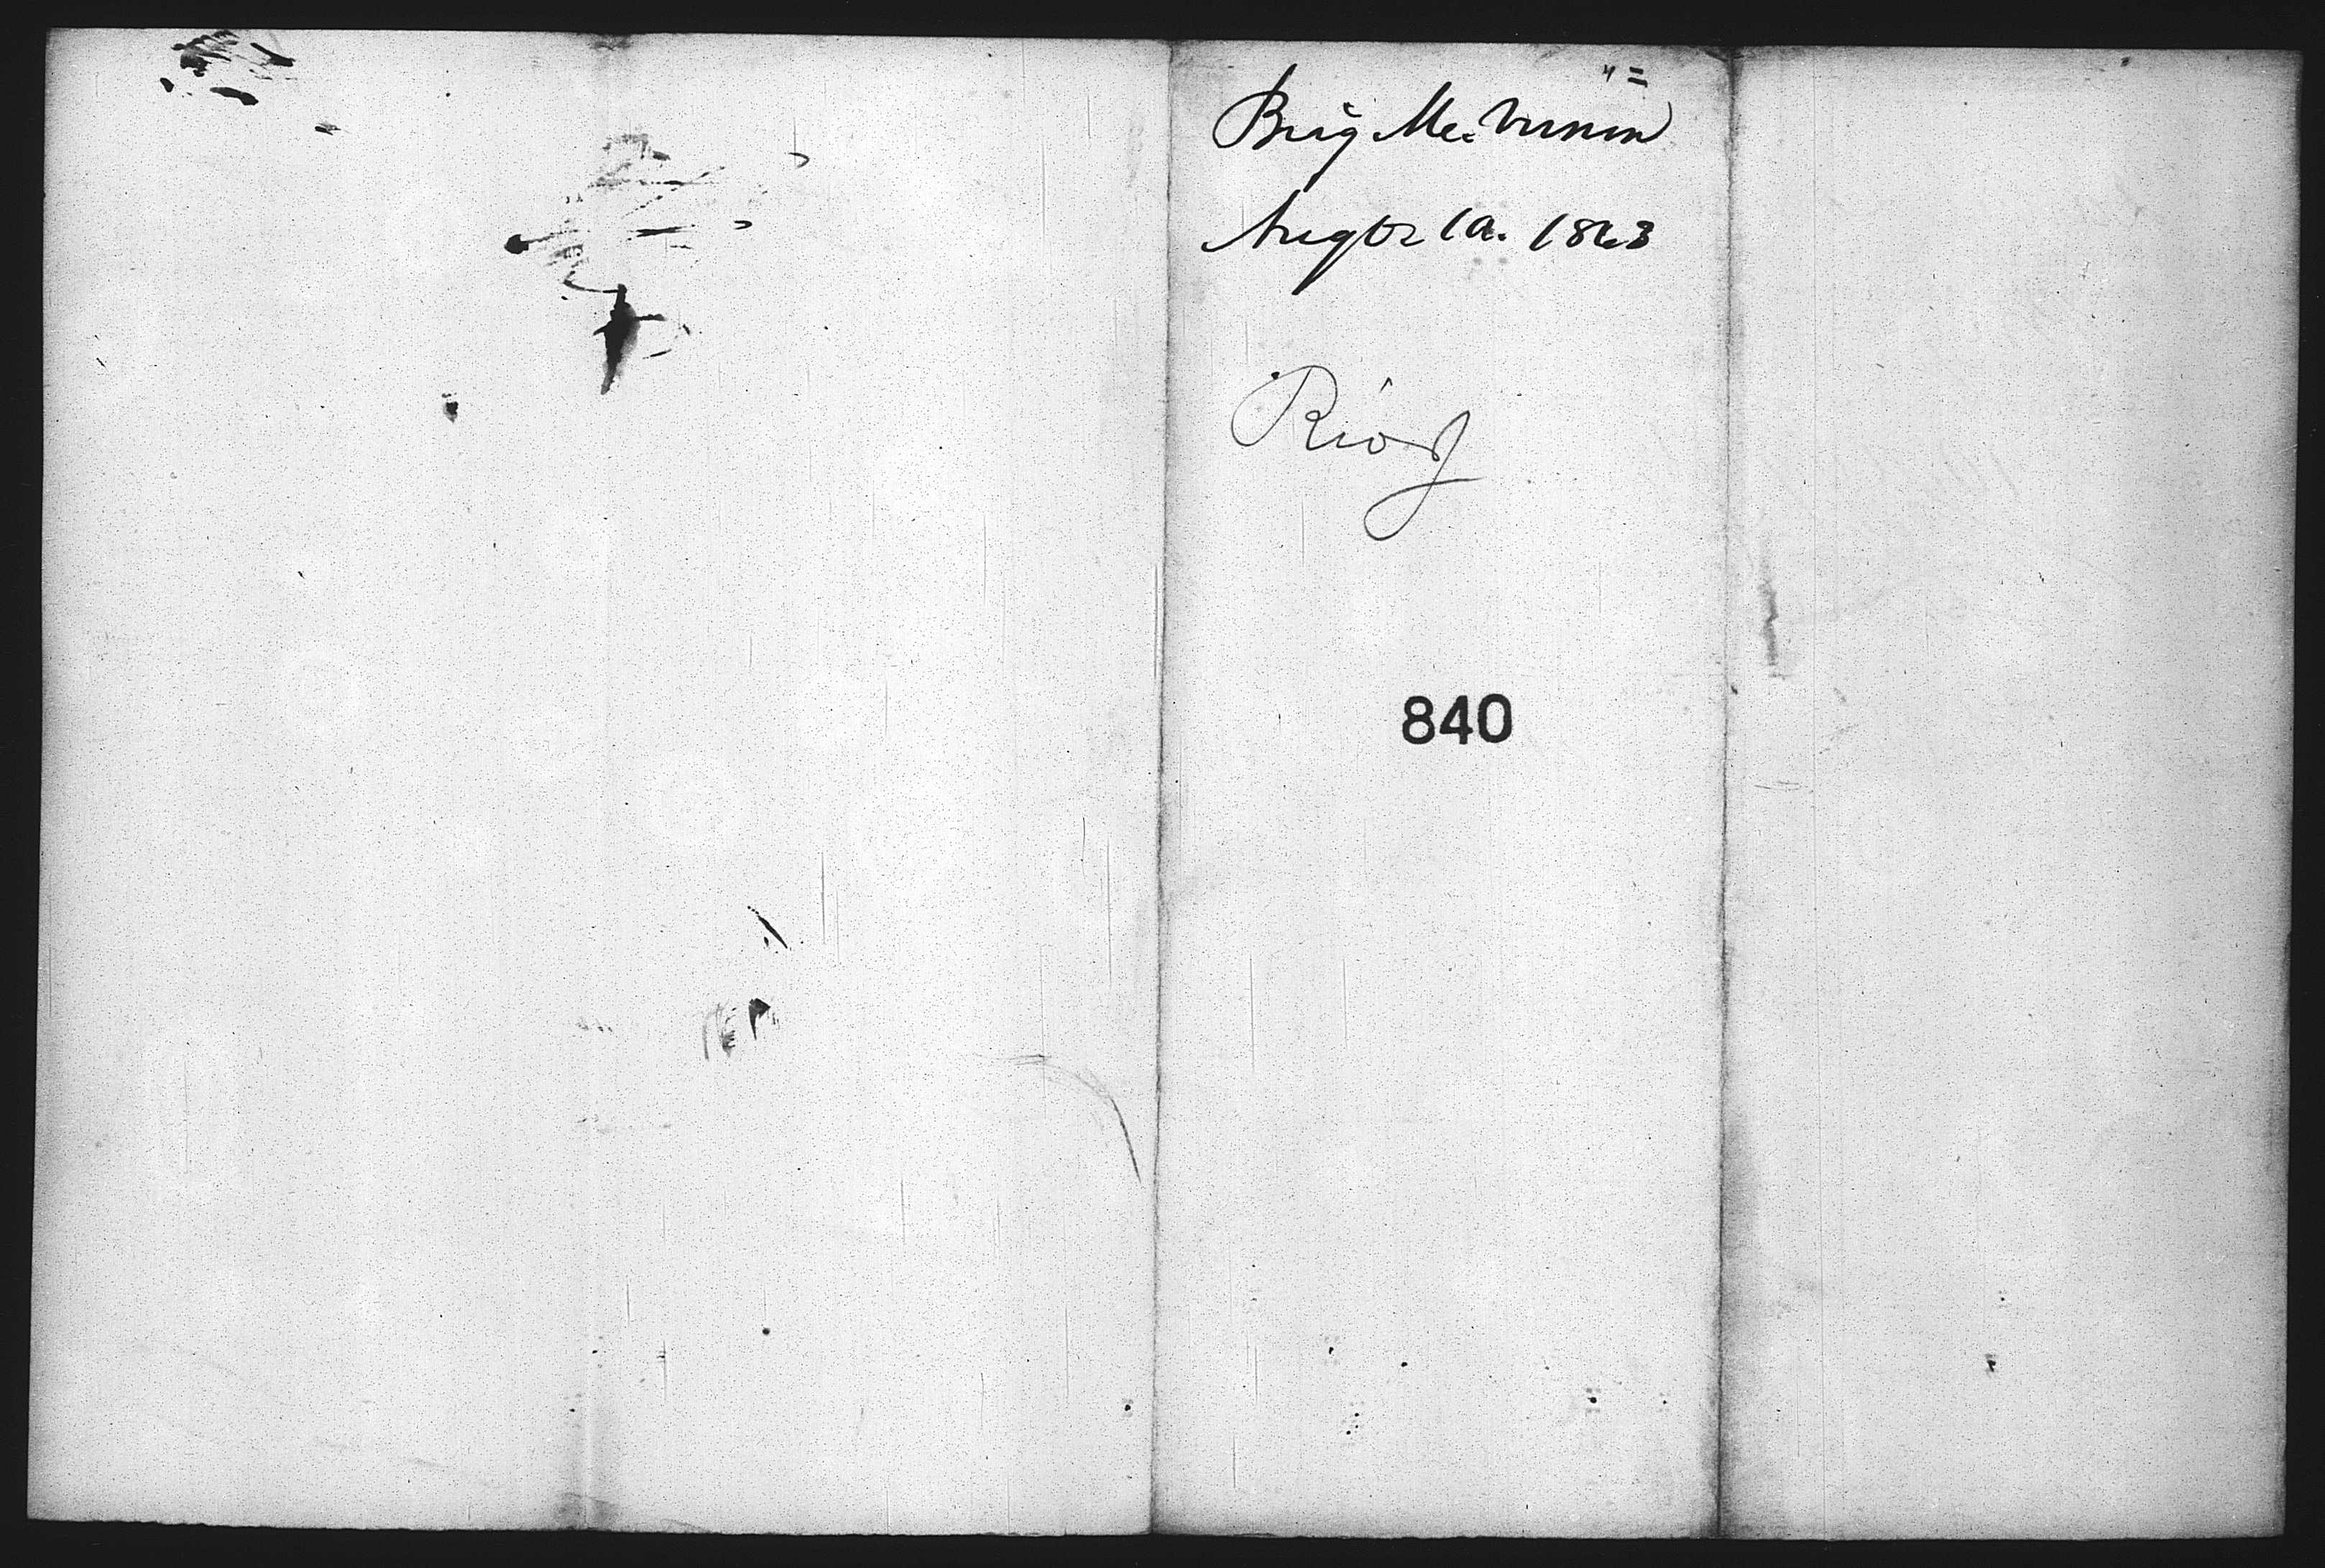 Brig Mt. Vernon
Augt 10. 1863
Rio J
840